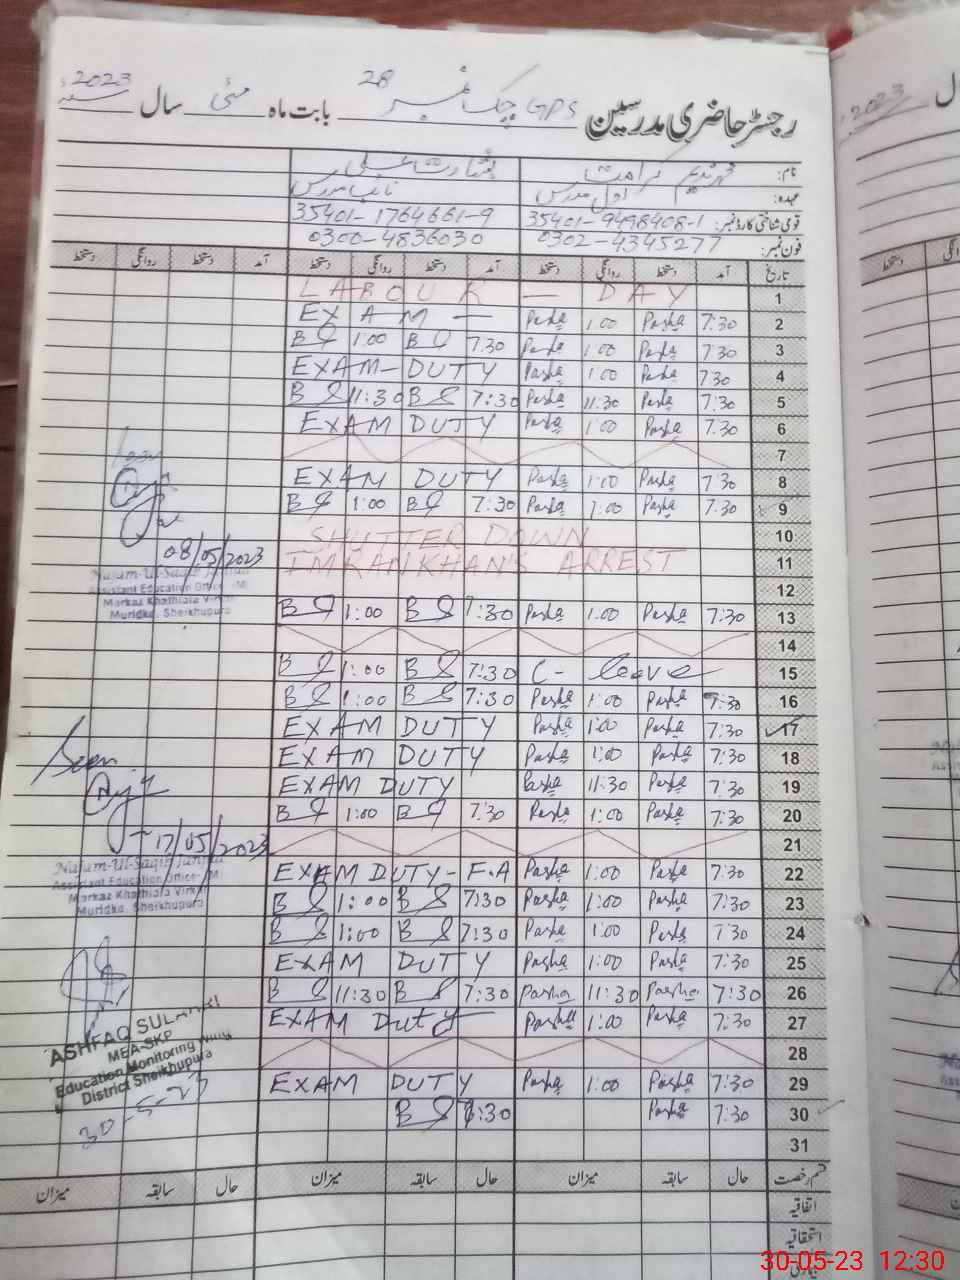 رجسٹر حاضری مدرسین GPS چک نمبر 28 بابت ماہ مئی سال 2023
نام: محمد ندیم کرامت بشارت علی
عہدہ: اول مدرس نائب مدرس
قومی شناختی کارڈ نمبر: 35401-9498408-1 35401-1764661-9
فون نمبر: 0302-4345277 0300-4836030
تاریخ آمد دستخط روانگی دستخط آمد دستخط روانگی دستخط آمد دستخط روانگی دستخط
LABOUR — DAY 1
EXAM — Pasha 1:00 Pasha 7:30 2
BS 1:00 BS 7:30 Pasha 1:00 Pasha 7:30 3
EXAM-DUTY Pasha 1:00 Pasha 7:30 4
BS 11:30 BS 7:30 Pasha 11:30 Pasha 7:30 5
EXAM DUTY Pasha 1:00 Pasha 7:30 6
7
EXAM DUTY Pasha 1:00 Pasha 7:30 8
BS 1:00 BS 7:30 Pasha 1:00 Pasha 7:30 9
SHUTTER DOWN 10
IMRAN KHAN'S ARREST 11
12
BS 1:00 BS 7:30 Pasha 1:00 Pasha 7:30 13
14
BS 1:00 BS 7:30 C-leave 15
BS 1:00 BS 7:30 Pasha 1:00 Pasha 7:30 16
EXAM DUTY Pasha 1:00 Pasha 7:30 17
EXAM DUTY Pasha 1:00 Pasha 7:30 18
EXAM DUTY Pasha 11:30 Pasha 7:30 19
BS 1:00 BS 7:30 Pasha 1:00 Pasha 7:30 20
21
EXAM DUTY-F.A Pasha 1:00 Pasha 7:30 22
BS 1:00 BS 7:30 Pasha 1:00 Pasha 7:30 23
BS 1:00 BS 7:30 Pasha 1:00 Pasha 7:30 24
EXAM DUTY Pasha 1:00 Pasha 7:30 25
BS 11:30 BS 7:30 Pasha 11:30 Pasha 7:30 26
EXAM Duty Pasha 1:00 Pasha 7:30 27
28
EXAM DUTY Pasha 1:00 Pasha 7:30 29
BS 7:30 Pasha 7:30 30
31
قسم رخصت حال سابقہ میزان حال سابقہ میزان حال سابقہ میزان
اتفاقیہ
استحقاقیہ
بیماری
Seen
08/05/2023
Najam-Ul-Saqib Janjua
Assistant Education Officer (M)
Markaz Khathiala Virkan
Muridke, Sheikhupura
Seen
17/05/2023
Najam-Ul-Saqib Janjua
Assistant Education Officer (M)
Markaz Khathiala Virkan
Muridke, Sheikhupura
ASHFAQ SULAHRI
MEA-SKP
Education Monitoring Wing
District Sheikhupura
30-5-23
2023
30-05-23 12:30